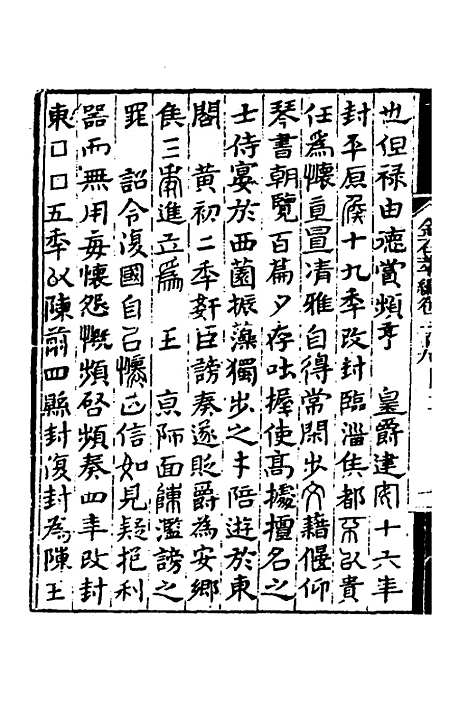 也但祿由德賞頻享　皇爵建安十六年
封平原侯十九季改封臨淄侯都不以貴
任為懷直置清雅自得常閑步文藉偃仰
琴書朝覽百篇夕存吐握使高據擅名之
士侍宴於西園振藻獨步之才陪遊於東
閣　黃初二季奸臣謗奏遂貶爵為安鄉
侯三季進立為　王　京師面陳濫謗之
罪　詔令復國自以懷正信如見疑抱利
器而無用每懷怨慨頻啓頻奏四年改封
東口口五季以陳前四縣封復封為陳王
金石萃編卷